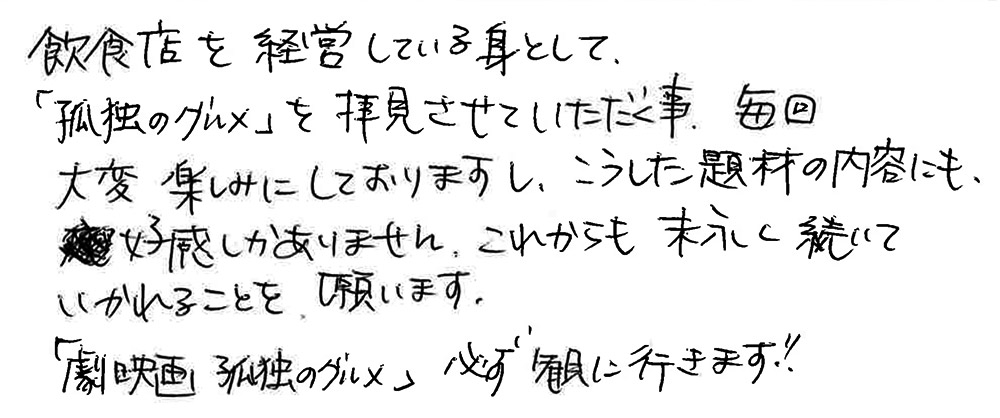 飲食店を経営している身として、
「孤独のグルメ」を拝見させていただく事、毎回
大変楽しみにしておりますし、こうした題材の内容にも、
好感しかありません。これからも末永く続いて
いかれることを、願います。
「劇映画 孤独のグルメ」必ず観に行きます!!